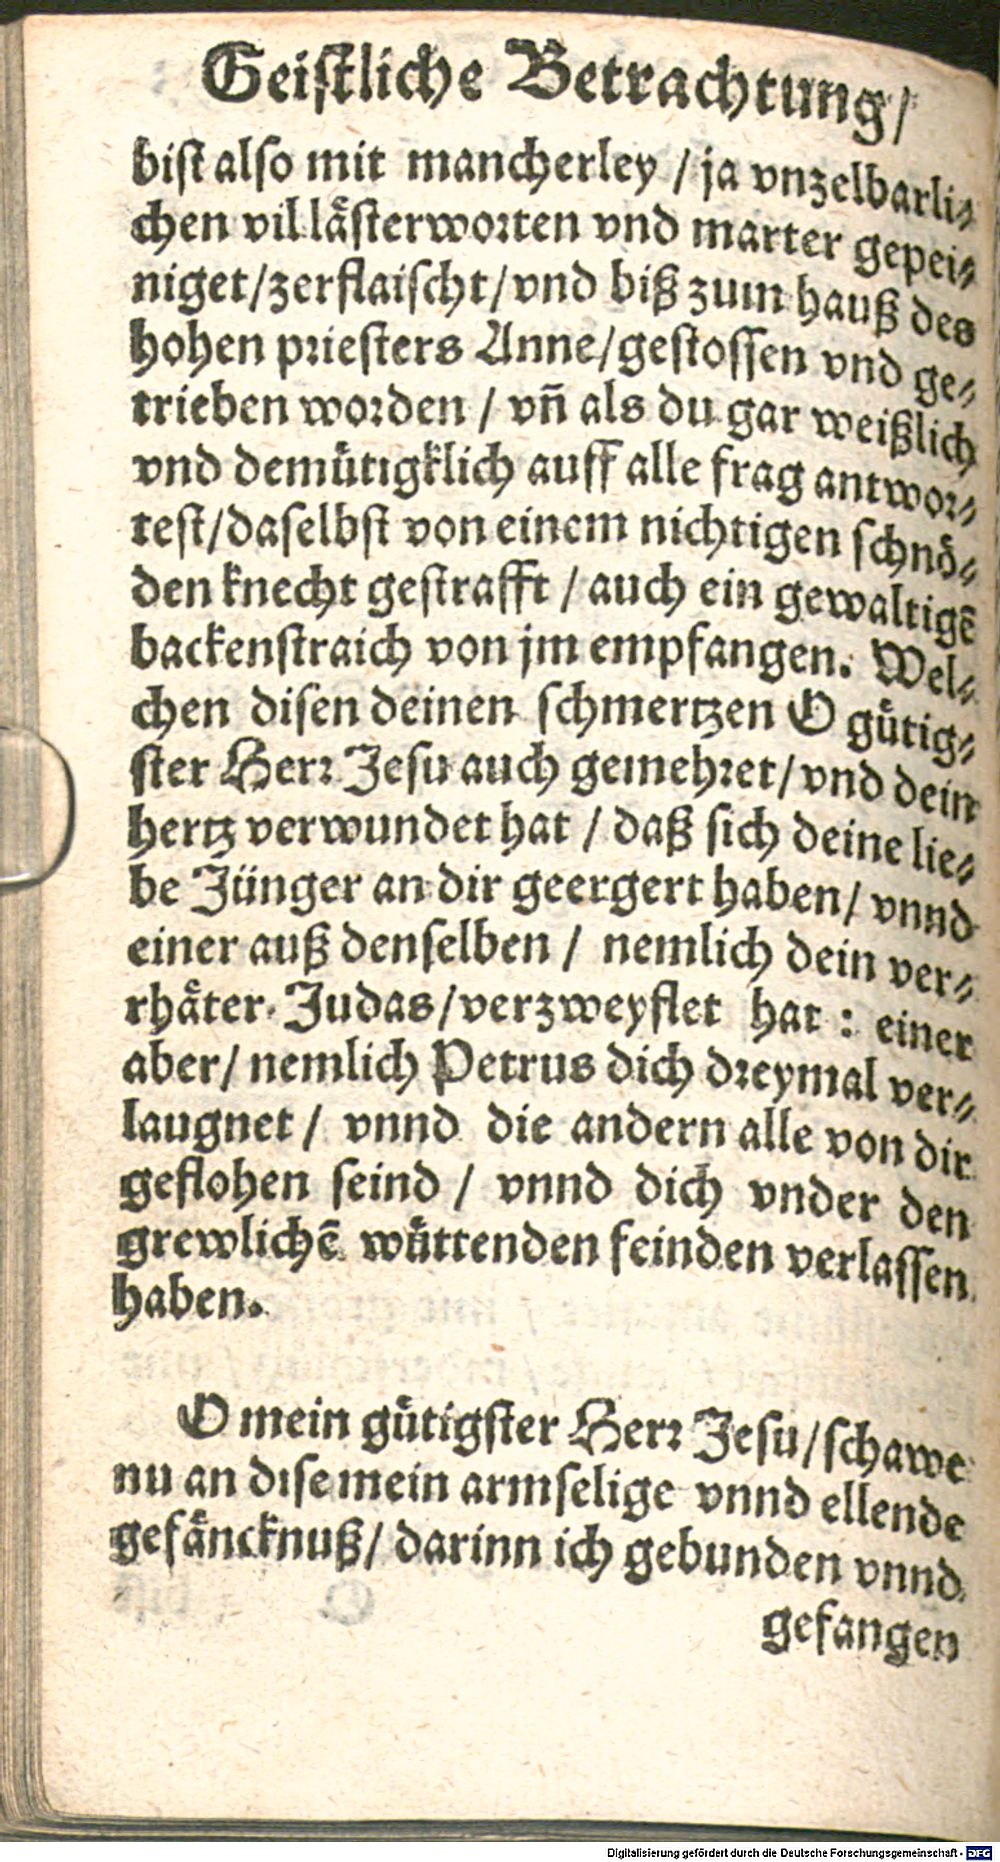 Geistliche Betrachtung/
bist also mit mancherley / ja vnzelbarli⸗
chen vil lästerworten vnd marter gepei⸗
niget/zerflaischt/vnd biß zum hauß des
hohen priesters Anne/gestossen vnd ge⸗
trieben worden / vñ als du gar weißlich
vnd demütigklich auff alle frag antwor⸗
test/daselbst von einem nichtigen schnö⸗
den knecht gestrafft / auch ein gewaltigẽ
backenstraich von jm empfangen. Wel⸗
chen disen deinen schmertzen O gütig⸗
ster Herr Jesu auch gemehret/vnd dein
hertz verwundet hat / daß sich deine lie⸗
be Jünger an dir geergert haben/ vnnd
einer auß denselben / nemlich dein ver⸗
rhäter Judas/verzweyflet hat : einer
aber/ nemlich Petrus dich dreymal ver⸗
laugnet / vnnd die andern alle von dir
geflohen seind / vnnd dich vnder den
grewlichẽ wüttenden feinden verlassen
haben.
O mein gütigster Herr Jesu/schawe
nu an dise mein armselige vnnd ellende
gefäncknuß/ darinn ich gebunden vnnd
gefangen
Digitalisierung gefördert durch die Deutsche Forschungsgemeinschaft - DFG